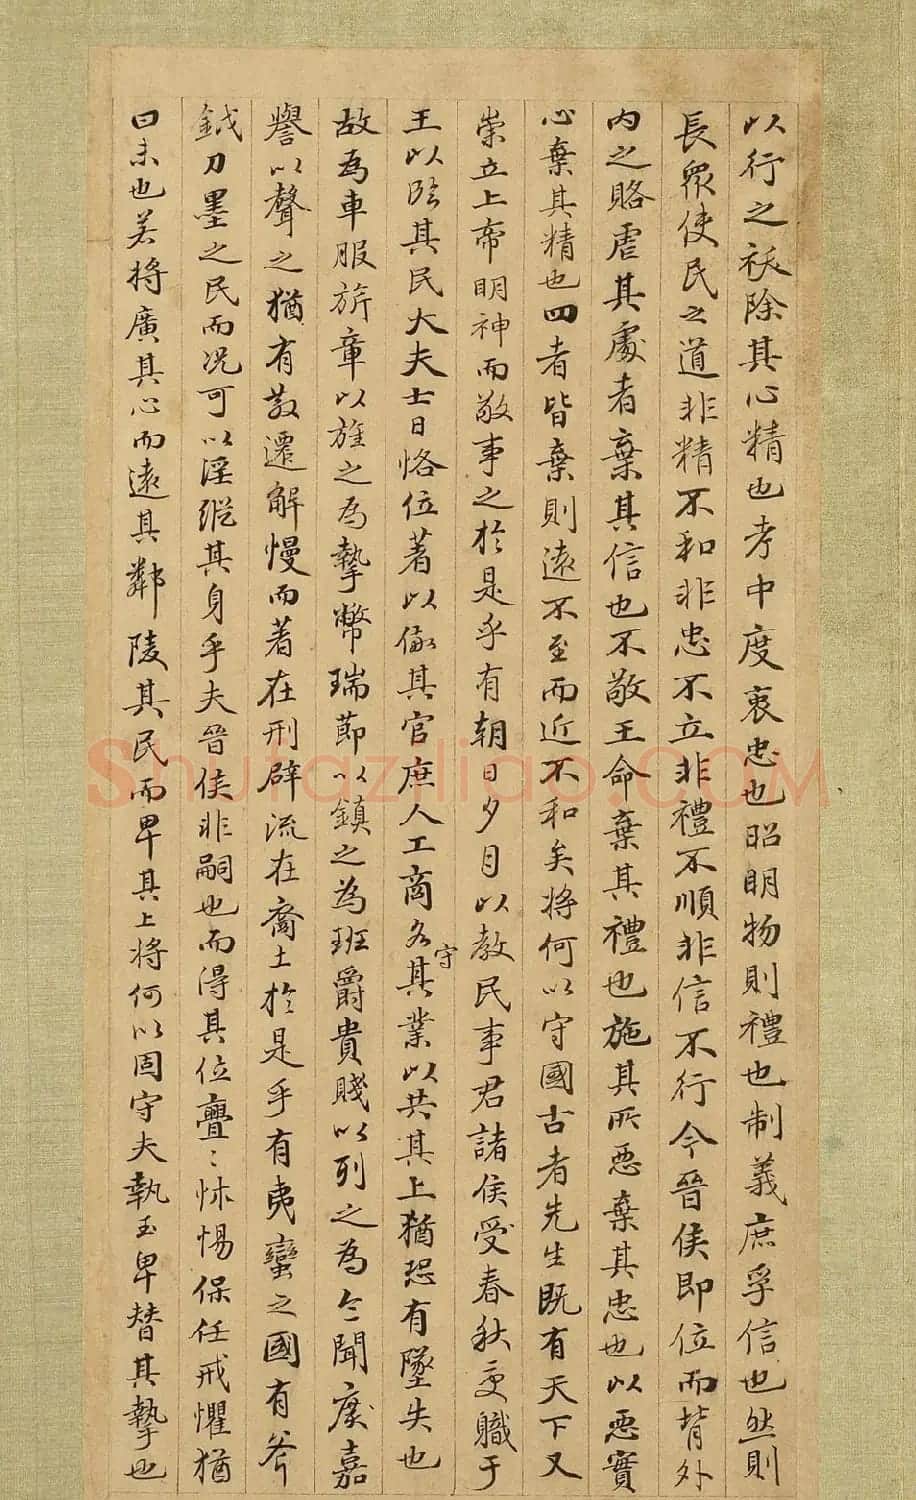 以行之祓除其心精也考中度衷忠也昭明物則禮也制義庶孚信也然則
長眾使民之道非精不和非忠不立非禮不順非信不行今晉侯即位而背外
內之賂虐其處者棄其信也不敬王命棄其禮也施其所惡棄其忠也以惡實
心棄其精也四者皆棄則遠不至而近不和矣將何以守國古者先生既有天下又
崇立上帝明神而敬事之於是乎有朝日夕月以教民事君諸侯受春秋受職于
王以臨其民大夫士日恪位著以儆其官庶人工商各守其業以共其上猶恐有墜失也
故為車服旂章以旌之為摯幣瑞節以鎮之為班爵貴賤以列之為令聞廣嘉
譽以聲之猶有散遷解慢而著在刑辟流在裔土於是乎有夷蠻之國有斧
鉞刀墨之民而況可以淫縱其身乎夫晉侯非嗣也而得其位亹〻怵惕保任戒懼猶
曰未也若將廣其心而遠其鄰陵其民而卑其上將何以固守夫執玉卑替其摯也
Shufaziliao.COM